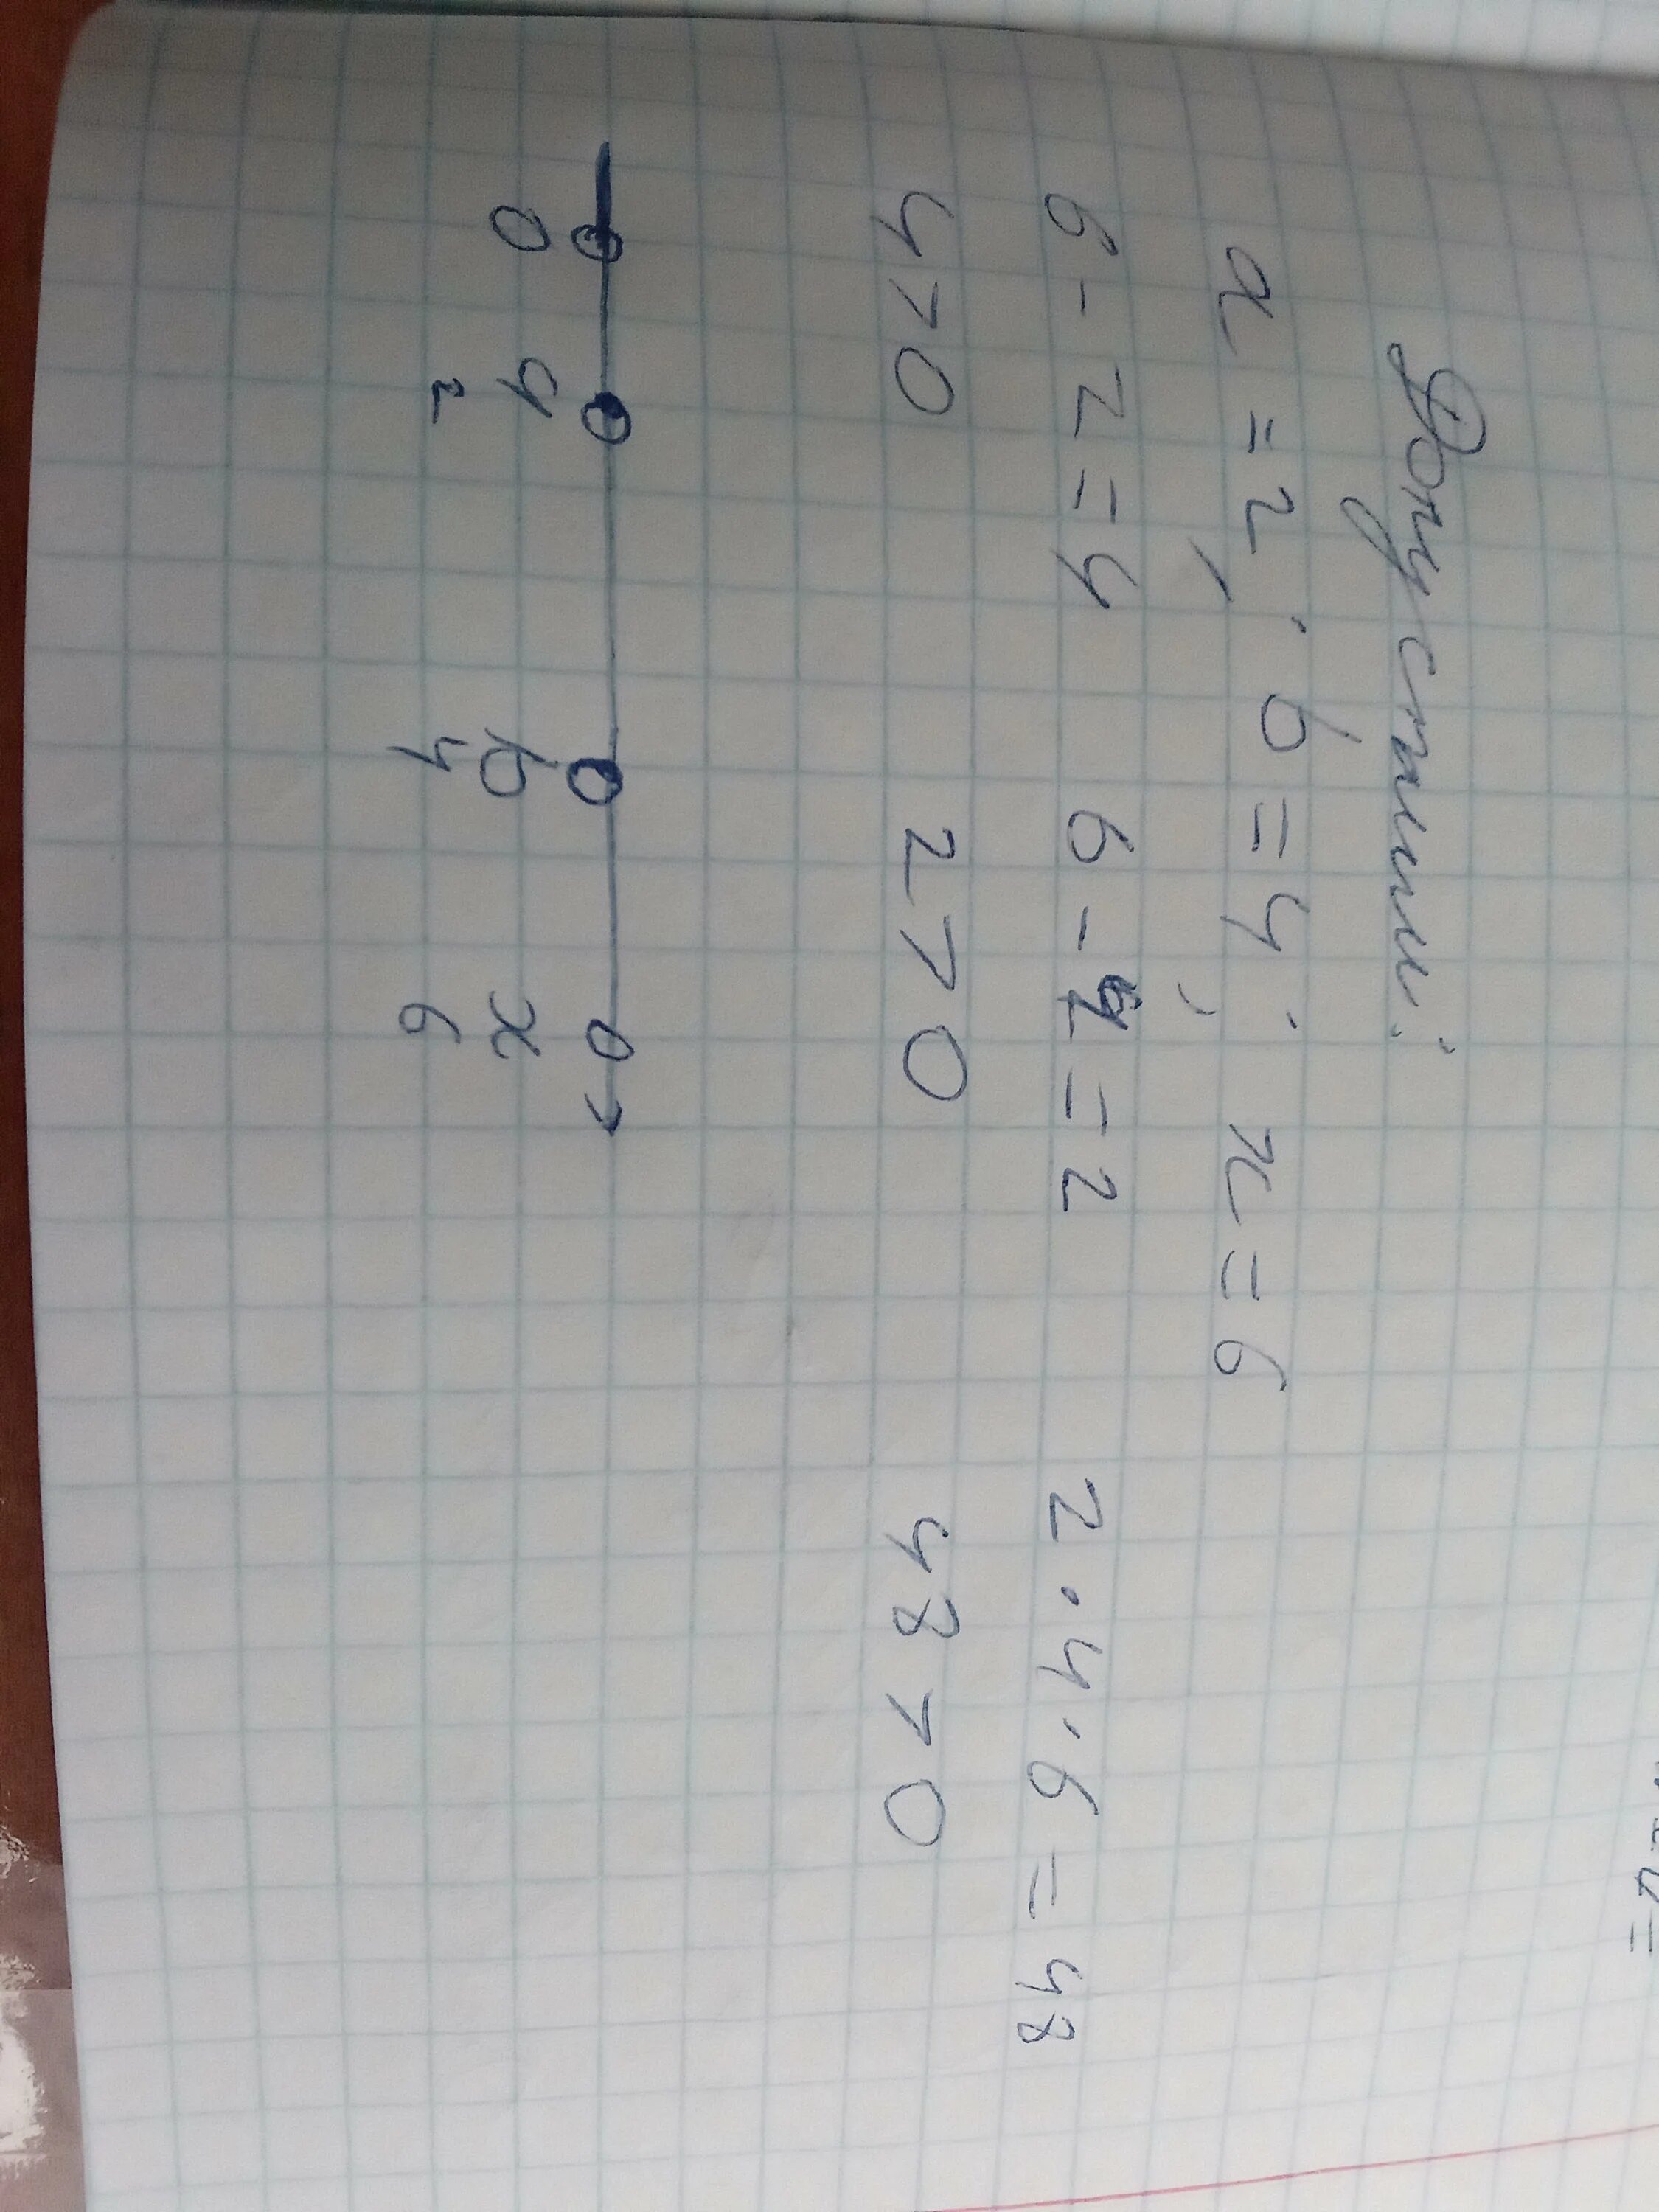 Допустим:
a = 2; b = 4; x = 6
6 - 2 = 4 6 - 4 = 2 2 · 4 · 6 = 48
4 > 0 2 > 0 48 > 0
0 a b x
2 4 6